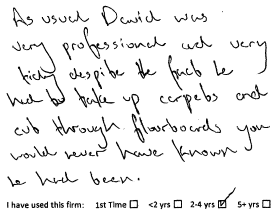 As usual David was
very professional and very
tidy despite the fact he
had to take up carpets and
cut through floorboards you
would never have known
he had been.
I have used this firm: 1st Time ☐ <2 yrs ☐ 2-4 yrs ☑ 5+ yrs ☐